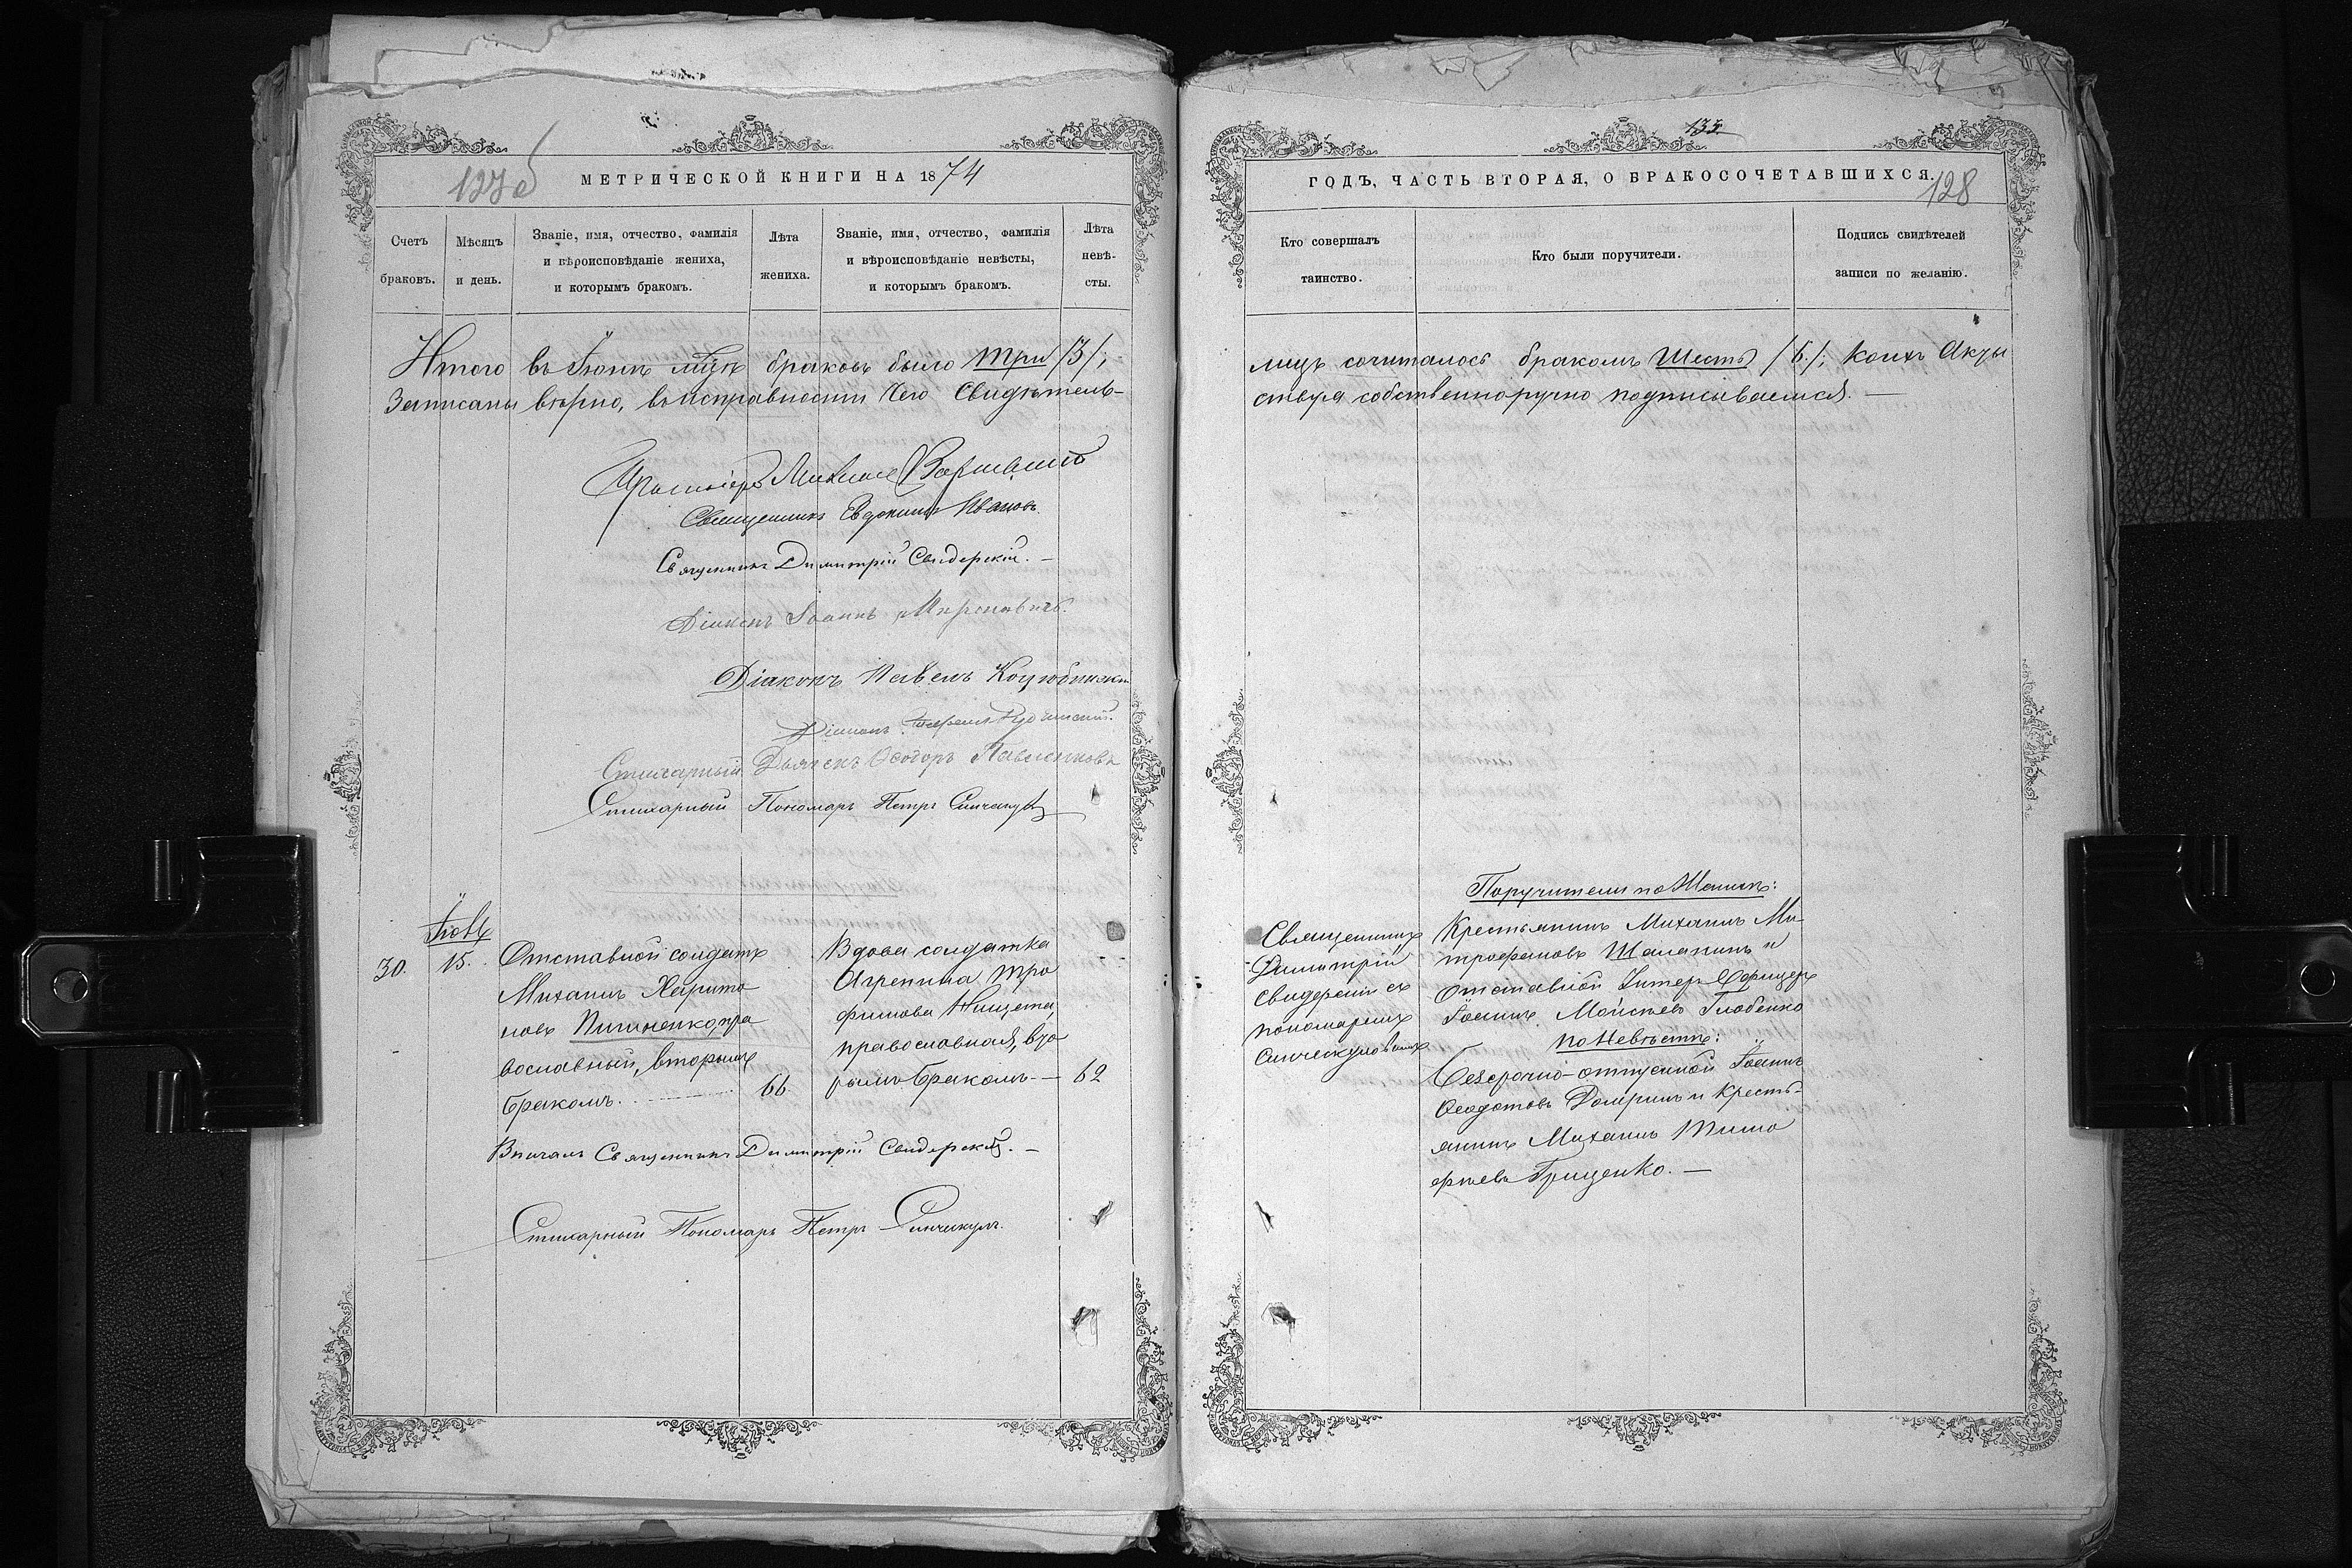 127об
МЕТРИЧЕСКОЙ КНИГИ НА 1874
Счетъ браковъ.
Мѣсяцъ и день.
Званіе, имя, отчество, фамилія
и вѣроисповѣданіе жениха,
и которымъ бракомъ.
Лѣта
жениха.
Званіе, имя, отчество, фамилія
и вѣроисповѣданіе невѣсты,
и которымъ бракомъ.
Лѣта
невѣ-
сты.
Итого въ Іюнѣ браковъ было три /3/,
Записаны вѣрно, въ исправности чего свидѣтель-
Протоіерей Михаилъ
Священникъ Евдокимъ Ивановъ.
Священникъ Димитрій Свидерскій. —
Діаконъ Іоаннъ Мироновичъ.
Діаконъ Павелъ
Діаконъ
Стихарный Дьячекъ Ѳеодоръ Павленковъ
Стихарный Пономарь Петръ
Іюль
30.
15.
Отставной солдатъ
Михаилъ Харито
новъ Пичиненко, пра
вославный, вторымъ
бракомъ.
66
Вдова солдатка
Агрепина Тро
фимова Нищета,
православная, вто
рымъ бракомъ. —
62
Вѣнчалъ Священникъ Димитрій Свидерскій. —
Стихарный Пономарь Петръ
132
ГОДЪ, ЧАСТЬ ВТОРАЯ, О БРАКОСОЧЕТАВШИХСЯ.
128
Кто совершалъ
таинство.
Кто были поручители.
Подпись свидѣтелей
записи по желанію.
лицъ сочиталось бракомъ шесть /6./; коихъ Акты
ствуя собственноручно подписываемся. —
Священникъ
Димитрій
Свидерскій съ
пономаремъ
Поручители по Женихѣ:
Крестьянинъ Михаилъ Ми-
трофановъ Шалапинъ и
отставной Унтеръ Офицеръ
Іоаннъ Моисѣевъ Глобенко
по Невѣстѣ:
Безсрочно-отпускной Іоаннъ
Ѳеодотовъ и кресть-
янинъ Михаилъ Тимо
фѣевъ Гриценко. —